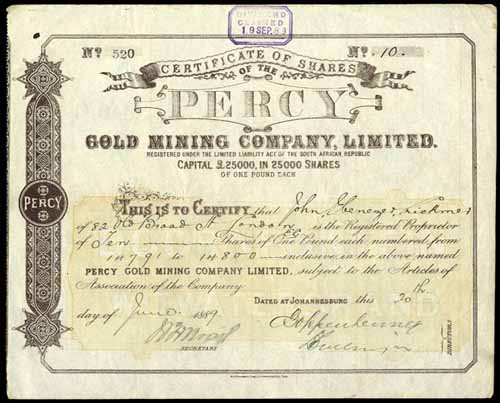 DIVIDEND
CLAIMED
19 SEP. 89
No 520 No 10
CERTIFICATE OF SHARES
OF THE
PERCY
GOLD MINING COMPANY, LIMITED.
REGISTERED UNDER THE LIMITED LIABILITY ACT OF THE SOUTH AFRICAN REPUBLIC
CAPITAL £25000, IN 25000 SHARES
OF ONE POUND EACH
PERCY
THIS IS TO CERTIFY that John Ebenezer
of 82 Old Broad St London EC is the Registered Proprietor
of Ten Shares of One Pound each numbered, from
14791 to 14800 inclusive in the above named
PERCY GOLD MINING COMPANY LIMITED, subject to the Articles of
Association of the Company
DATED AT JOHANNESBURG this 20th
day of June 1889
SECRETARY
DIRECTORS